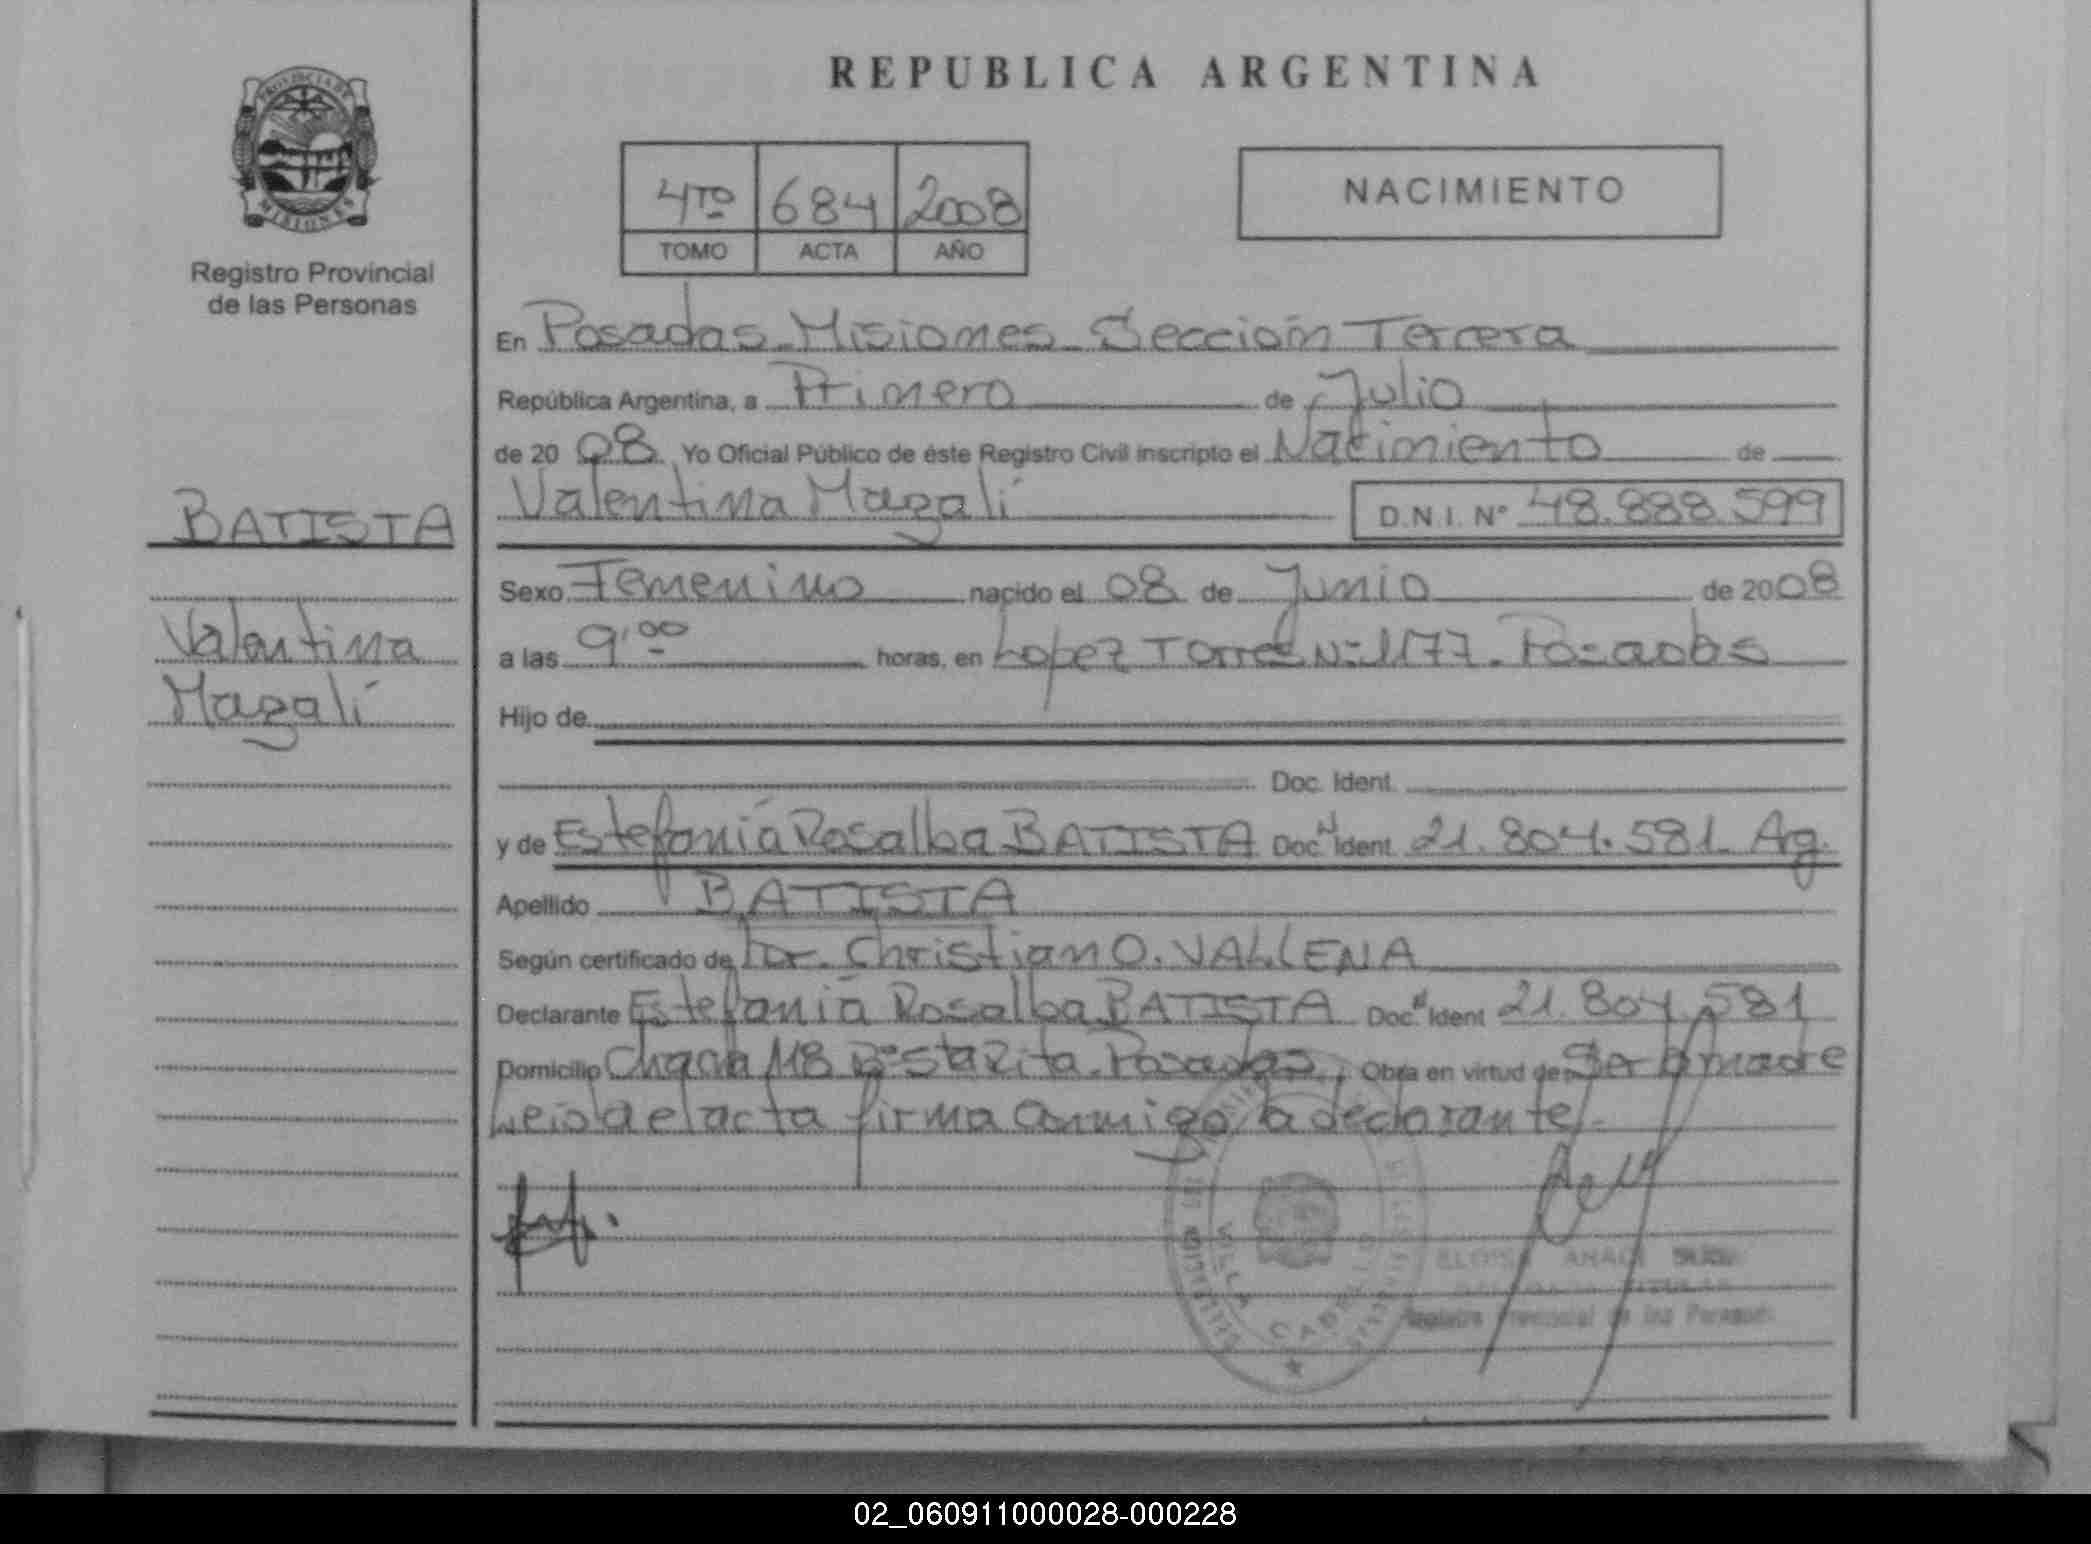 REPUBLICA ARGENTINA
PROVINCIA DE
MISIONES
Registro Provincial
de las Personas
4TO 684 2008
TOMO ACTA AÑO
NACIMIENTO
En Posadas - Misiones - Sección Tercera
República Argentina, a Primero de Julio
de 2008 Yo Oficial Público de éste Registro Civil inscripto el Nacimiento de
Valentina Magalí D.N.I. N° 48.888.599
BATISTA
Valentina
Magalí
Sexo Femenino nacido el 08 de Junio de 2008
a las 9'00 horas, en Lopez Torres N° 1177 - Posadas
Hijo de
Doc. Ident.
y de Estefanía Rosalba BATISTA Doc. N Ident. 21.804.581 Ag.
Apellido BATISTA
Según certificado de Dr. Christian O. VALLENA
Declarante Estefanía Rosalba BATISTA Doc. N Ident 21.804.581
Domicilio Chacra 118 B° Sta Rita - Posadas Obra en virtud de Ser la madre
Leida el acta firma conmigo la declarante -
VILLA CABELLO
Registro Provincial de las Personas
02_060911000028-000228